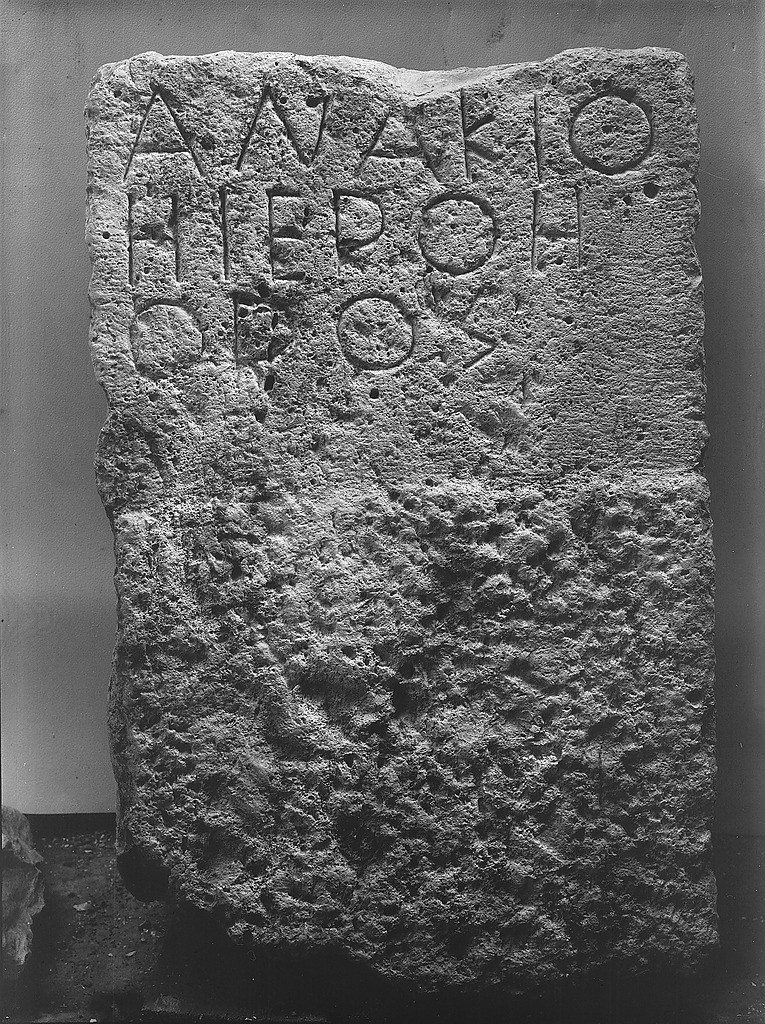 ΑΝΑΚΙΟ
ΗΙΕΡΟΗ
ΟΡΟΣ